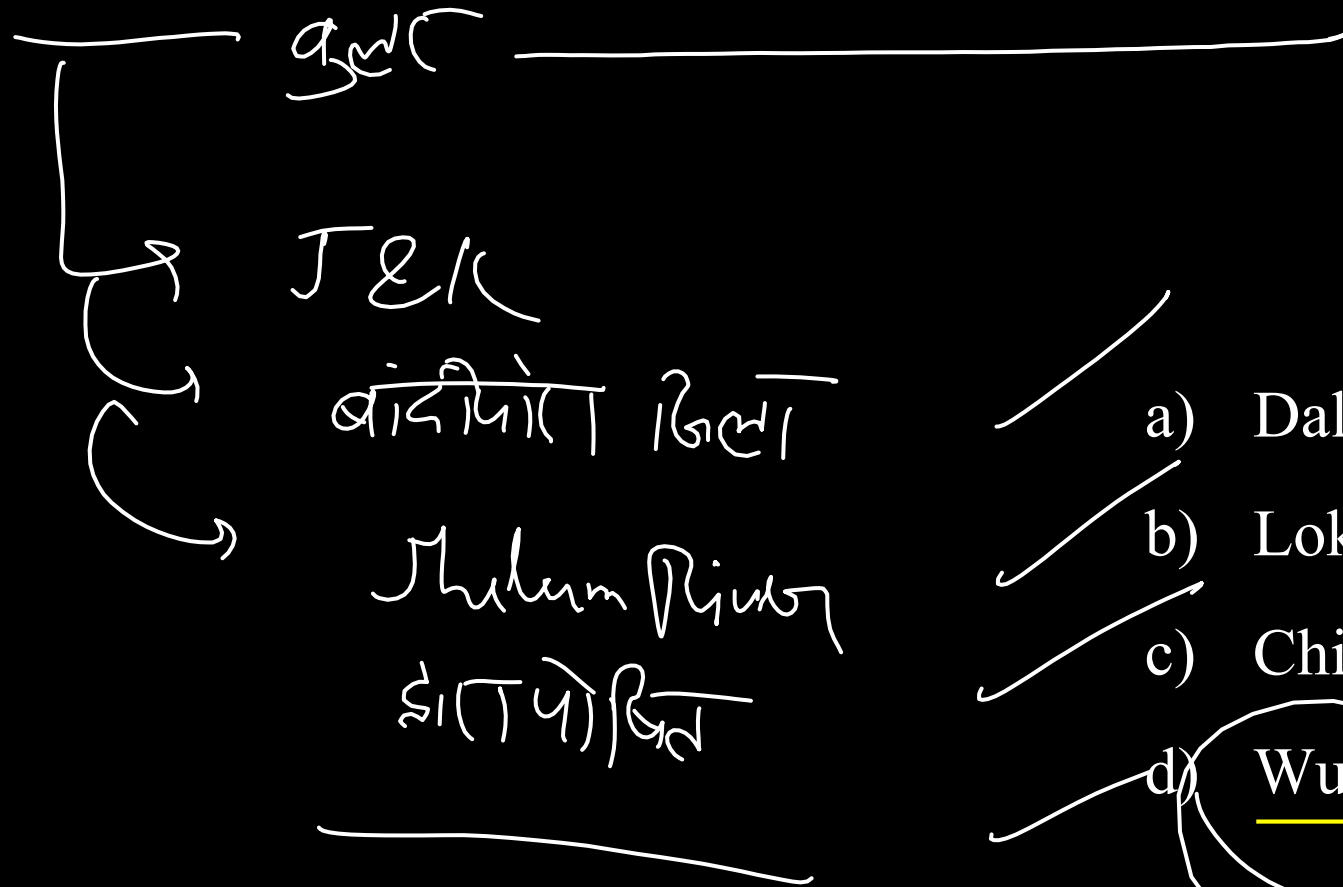 वुलर
J&K
बांदीपोरा जिला
Jhelum River
द्वारा पोषित
a) Dal
b) Lok
c) Chi
d) Wu